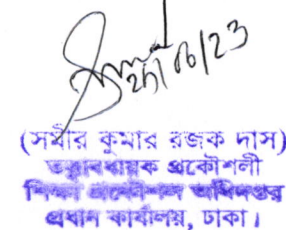 25/06/23
(সমীর কুমার রজক দাস)
তত্ত্বাবধায়ক প্রকৌশলী
শিক্ষা প্রকৌশল অধিদপ্তর
প্রধান কার্যালয়, ঢাকা।